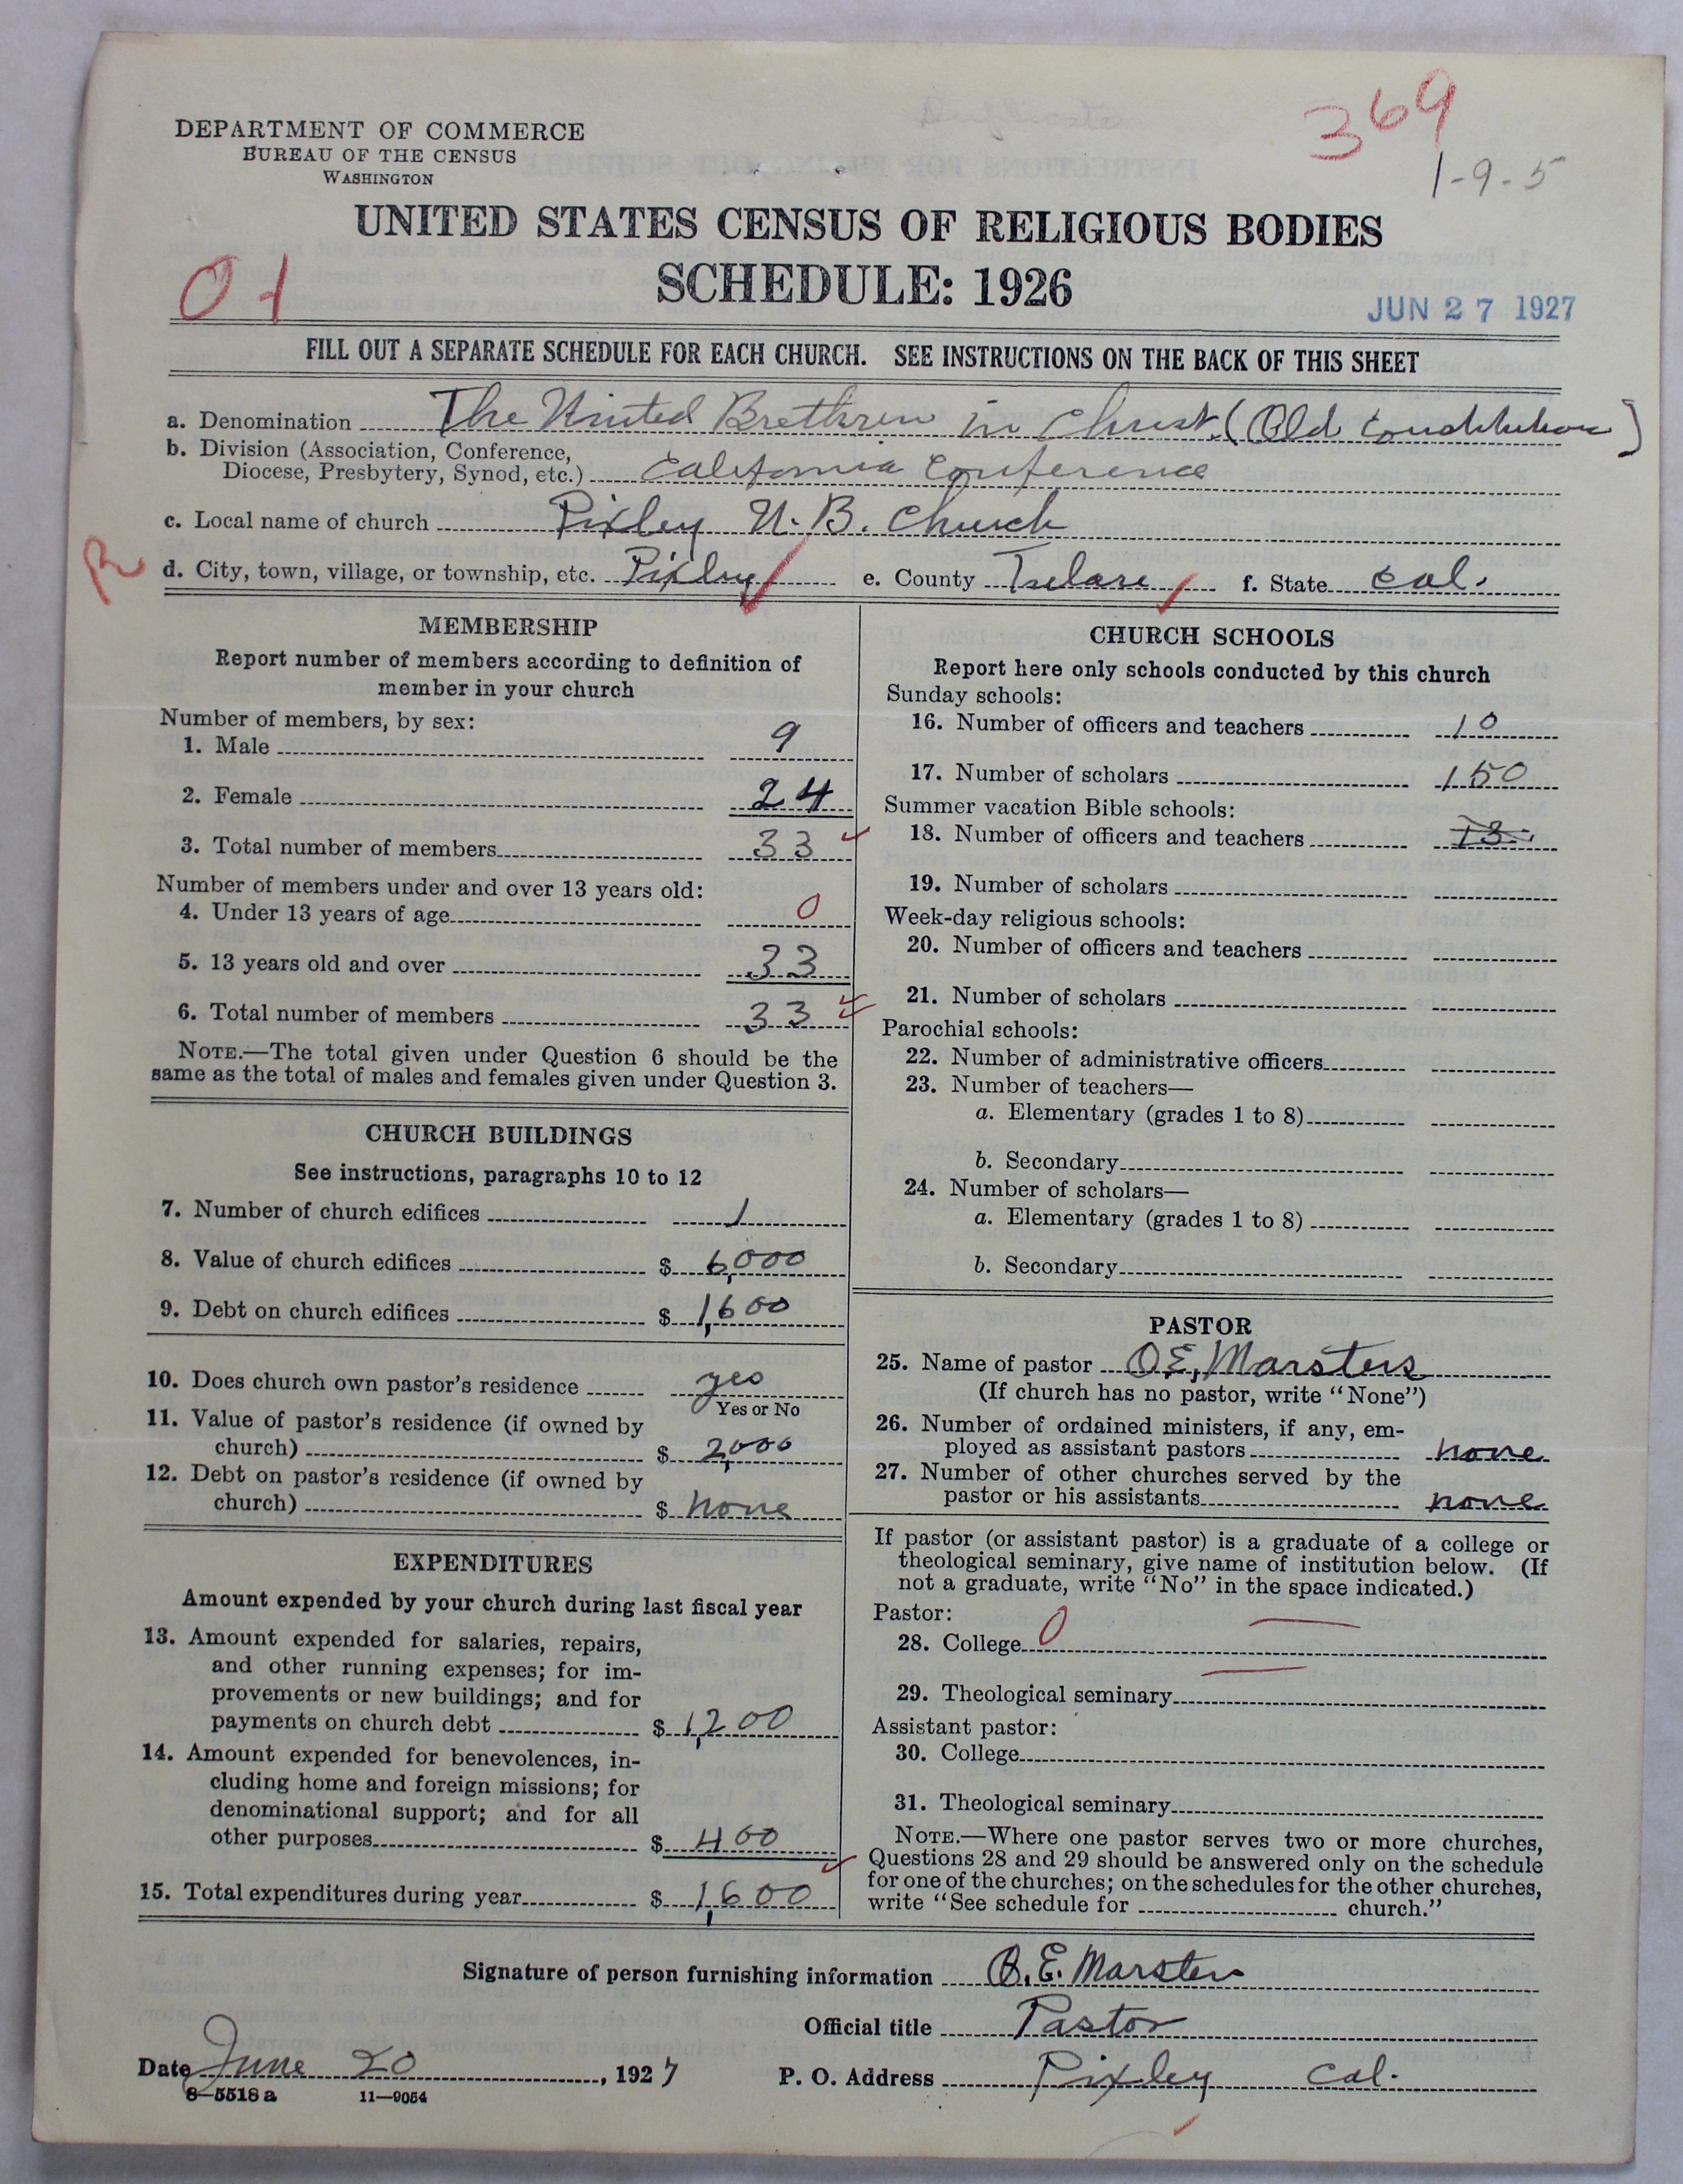 369
1-9-5
DEPARTMENT OF COMMERCE
BUREAU OF THE CENSUS
WASHINGTON
UNITED STATES CENSUS OF RELIGIOUS BODIES
SCHEDULE: 1926
01
JUN 27 1927
FILL OUT A SEPARATE SCHEDULE FOR EACH CHURCH. SEE INSTRUCTIONS ON THE BACK OF THIS SHEET
a. Denomination The United Brethren in Christ. (Old Constitution)
b. Division (Association, Conference,
Diocese, Presbytery, Synod, etc.) California Conference
c. Local name of church Pixley U. B. Church
R
d. City, town, village, or township, etc. Pixley e. County Tulare f. State Cal.
MEMBERSHIP
Report number of members according to definition of
member in your church
Number of members, by sex:
1. Male 9
2. Female 24
3. Total number of members 33
Number of members under and over 13 years old:
4. Under 13 years of age 0
5. 13 years old and over 33
6. Total number of members 33
NOTE.—The total given under Question 6 should be the
same as the total of males and females given under Question 3.
CHURCH BUILDINGS
See instructions, paragraphs 10 to 12
7. Number of church edifices 1
8. Value of church edifices $ 6,000
9. Debt on church edifices $ 1,600
10. Does church own pastor's residence yes
Yes or No
11. Value of pastor's residence (if owned by
church) $ 2,000
12. Debt on pastor's residence (if owned by
church) $ none
EXPENDITURES
Amount expended by your church during last fiscal year
13. Amount expended for salaries, repairs,
and other running expenses; for im-
provements or new buildings; and for
payments on church debt $ 1,200
14. Amount expended for benevolences, in-
cluding home and foreign missions; for
denominational support; and for all
other purposes $ 400
15. Total expenditures during year $ 1,600
CHURCH SCHOOLS
Report here only schools conducted by this church
Sunday schools:
16. Number of officers and teachers 10
17. Number of scholars 150
Summer vacation Bible schools:
18. Number of officers and teachers 13
19. Number of scholars
Week-day religious schools:
20. Number of officers and teachers
21. Number of scholars
Parochial schools:
22. Number of administrative officers
23. Number of teachers—
a. Elementary (grades 1 to 8)
b. Secondary
24. Number of scholars—
a. Elementary (grades 1 to 8)
b. Secondary
PASTOR
25. Name of pastor O. E. Marsters
(If church has no pastor, write "None")
26. Number of ordained ministers, if any, em-
ployed as assistant pastors none
27. Number of other churches served by the
pastor or his assistants none
If pastor (or assistant pastor) is a graduate of a college or
theological seminary, give name of institution below. (If
not a graduate, write "No" in the space indicated.)
Pastor:
28. College 0 —
29. Theological seminary —
Assistant pastor:
30. College
31. Theological seminary
NOTE.—Where one pastor serves two or more churches,
Questions 28 and 29 should be answered only on the schedule
for one of the churches; on the schedules for the other churches,
write "See schedule for church."
Signature of person furnishing information O. E. Marsters
Official title Pastor
Date June 20, 1927 P. O. Address Pixley Cal.
8—5518 a 11—9054